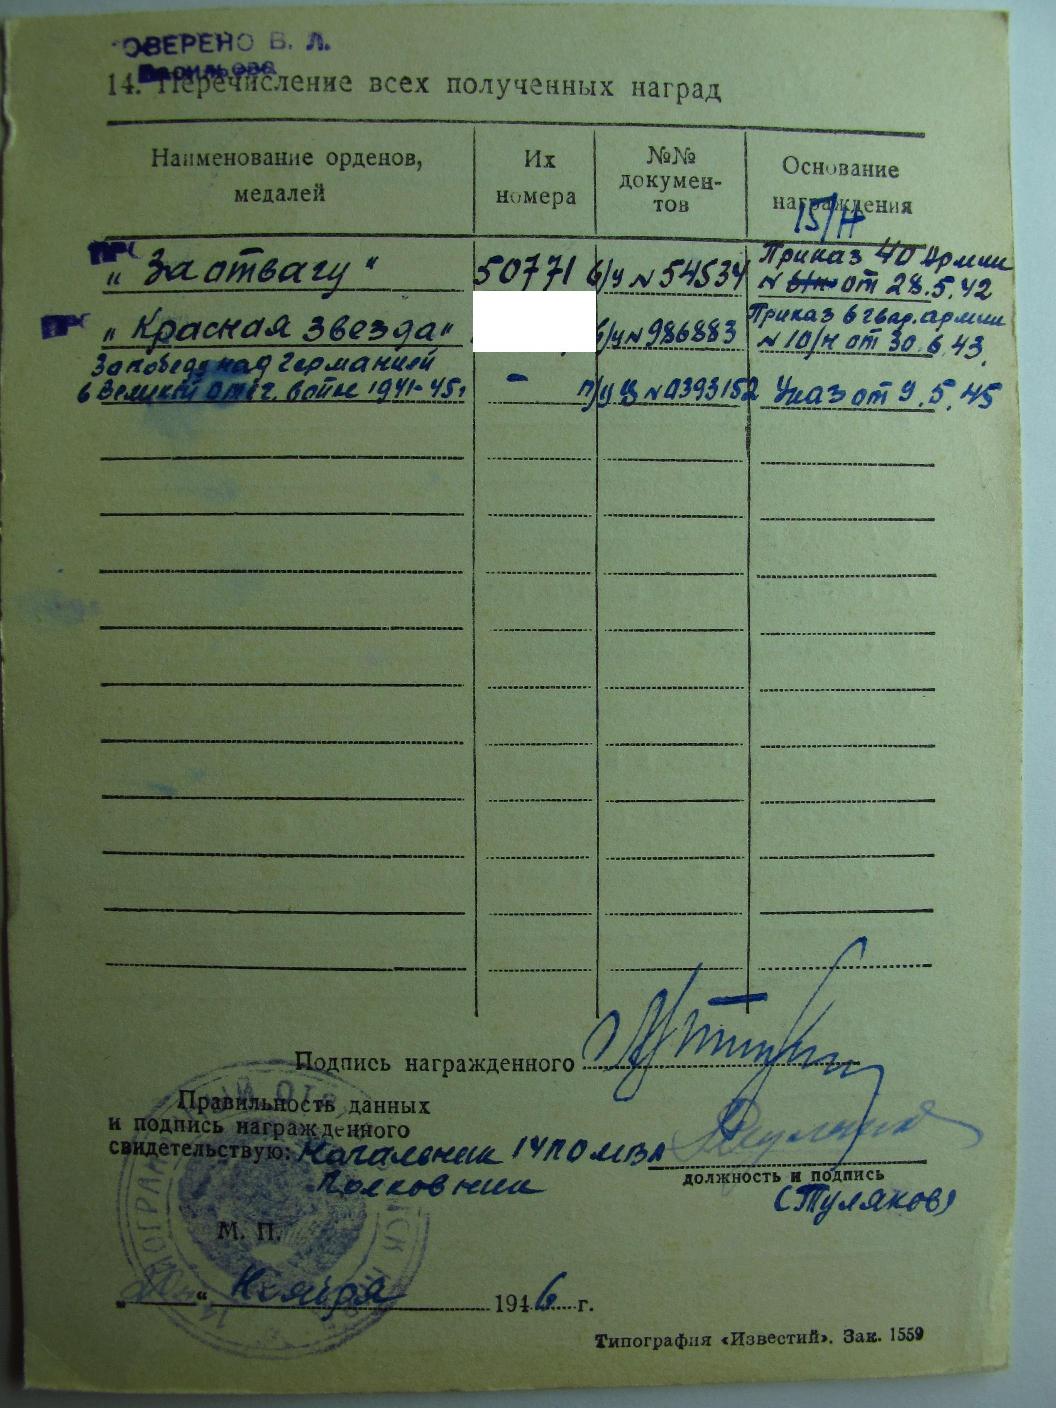 ОВЕРЕНО В. Л.
Васильева
14. Перечисление всех полученных наград
Наименование орденов, медалей
Их номера
№№ докумен-тов
Основание награждения
15/н
„За отвагу" 50771 б/у № 54534 Приказ 40 Армии
№ от 28.5.42
„Красная звезда" б/у № 986883 Приказ 6 гвар. армии
№ 10/н от 30.6.43.
За победу над Германией
в Великой отеч. войне 1941-45г - п/у Ц № 0393152 Указ от 9.5.45
Подпись награжденного
Правильность данных
и подпись награжденного
свидетельствую: Начальник 14 ПОМВЛ
должность и подпись
Полковник (Туляков)
М. П.
„ " Ноября 1946 г.
Типография «Известий». Зак. 1559